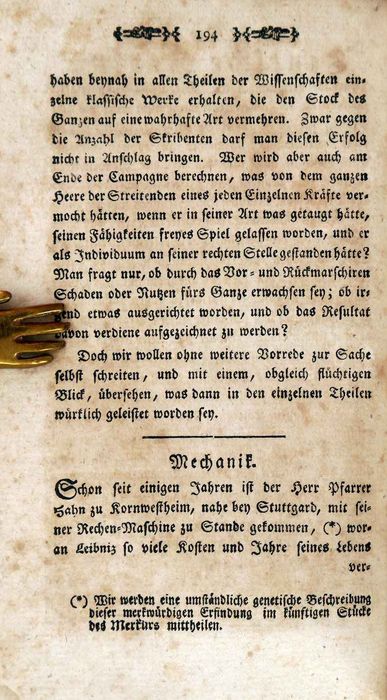 194
haben beynah in allen Theilen der Wissenschaften ein-
zelne klassische Werke erhalten, die den Stock des
Ganzen auf eine wahrhafte Art vermehren. Zwar gegen
die Anzahl der Skribenten darf man diesen Erfolg
nicht in Anschlag bringen. Wer wird aber auch am
Ende der Campagne berechnen, was von dem ganzen
Heere der Streitenden eines jeden Einzelnen Kräfte ver-
mocht hätten, wenn er in seiner Art was getaugt hätte,
seinen Fähigkeiten freyes Spiel gelassen worden, und er
als Individuum an seiner rechten Stelle gestanden hätte?
Man fragt nur, ob durch das Vor- und Rückmarschiren
Schaden oder Nutzen fürs Ganze erwachsen sey; ob ir-
gend etwas ausgerichtet worden, und ob das Resultat
davon verdiene aufgezeichnet zu werden?
Doch wir wollen ohne weitere Vorrede zur Sache
selbst schreiten, und mit einem, obgleich flüchtigen
Blick, übersehen, was dann in den einzelnen Theilen
würklich geleistet worden sey.
Mechanik.
Schon seit einigen Jahren ist der Herr Pfarrer
Hahn zu Kornwestheim, nahe bey Stuttgard, mit sei-
ner Rechen-Maschine zu Stande gekommen, (*) wor-
an Leibniz so viele Kosten und Jahre seines Lebens
ver-
(*) Wir werden eine umständliche genetische Beschreibung
dieser merkwürdigen Erfindung im künftigen Stücke
des Merkurs mittheilen.